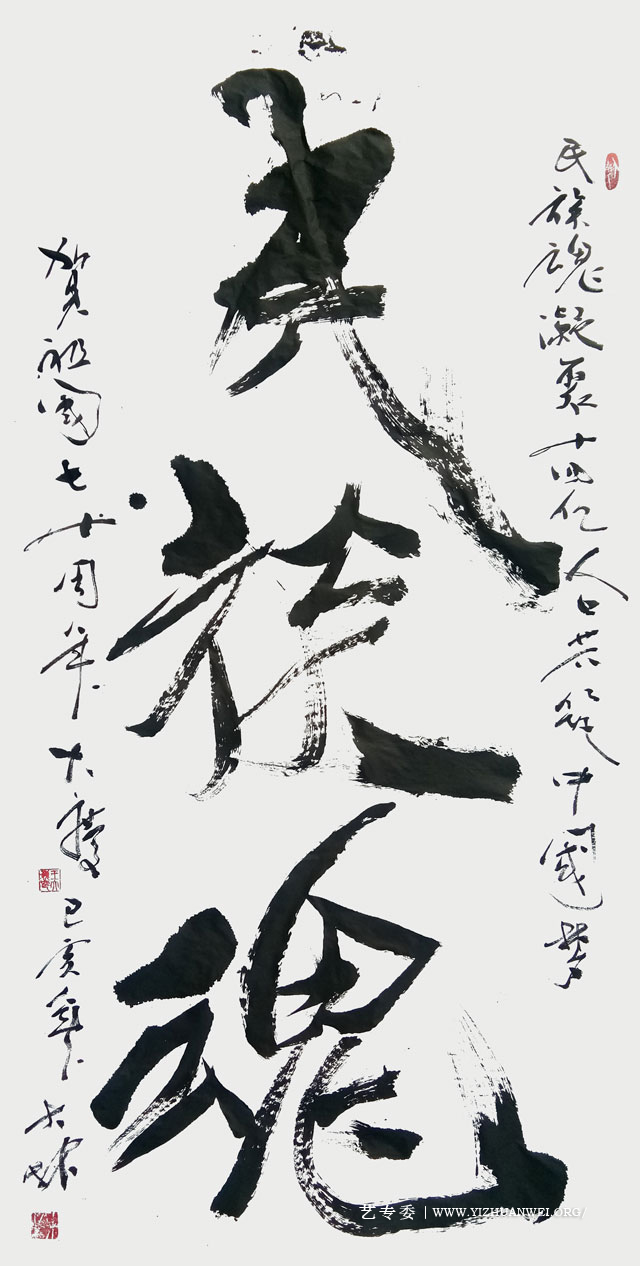 民族魂凝聚十四亿人口共筑中國梦
民族魂
賀祖國七十周年大慶
己亥年
艺专委 | WWW.YIZHUANWEI.ORG/